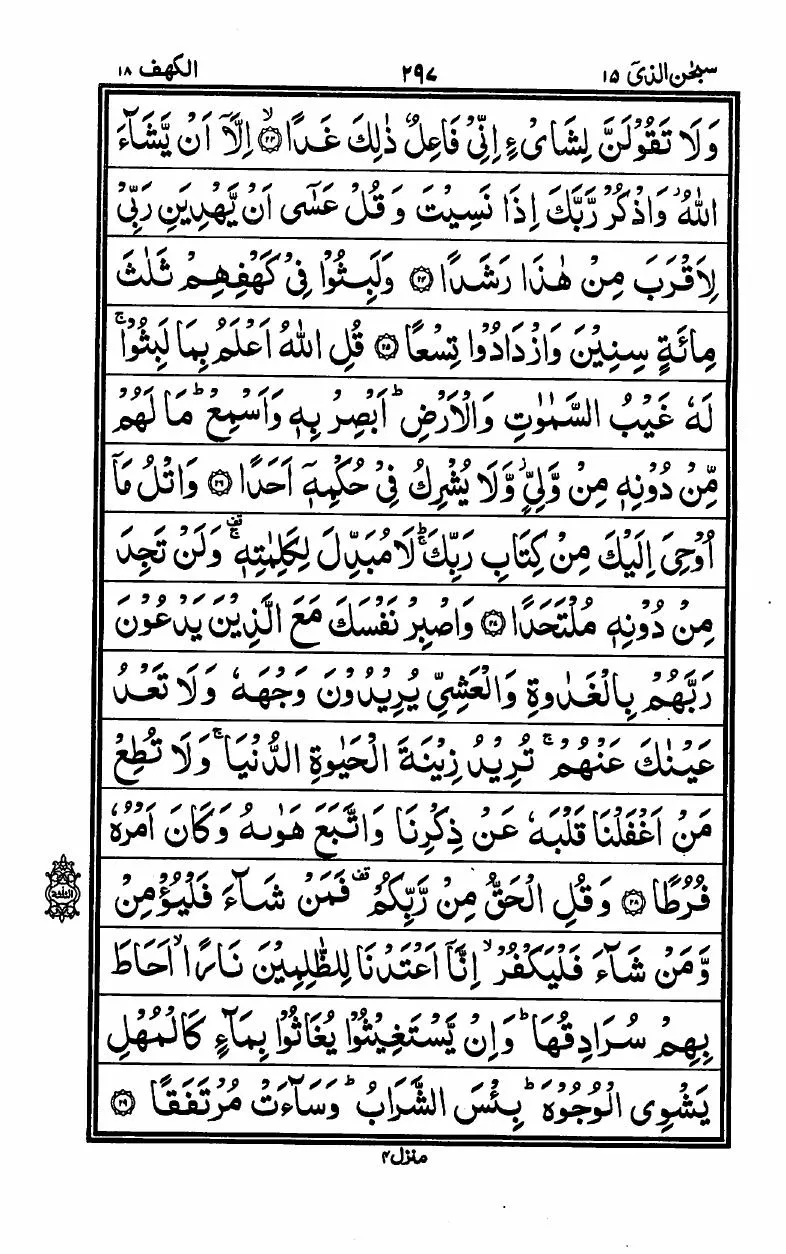 سبحٰن الذیٓ ۱۵ ۲۹۷ الکهف ۱۸
وَلَا تَقُوْلَنَّ لِشَایْءٍ اِنِّیْ فَاعِلٌ ذٰلِكَ غَدًا ۙ﴿۲۳﴾ اِلَّاۤ اَنْ یَّشَآءَ
اللّٰهُ ؗ وَاذْكُرْ رَّبَّكَ اِذَا نَسِیْتَ وَ قُلْ عَسٰۤی اَنْ یَّهْدِیَنِ رَبِّیْ
لِاَقْرَبَ مِنْ هٰذَا رَشَدًا ﴿۲۴﴾ وَلَبِثُوْا فِیْ كَهْفِهِمْ ثَلٰثَ
مِائَةٍ سِنِیْنَ وَازْدَادُوْا تِسْعًا ﴿۲۵﴾ قُلِ اللّٰهُ اَعْلَمُ بِمَا لَبِثُوْا ۚ
لَهٗ غَیْبُ السَّمٰوٰتِ وَالْاَرْضِ ؕ اَبْصِرْ بِهٖ وَاَسْمِعْ ؕ مَا لَهُمْ
مِّنْ دُوْنِهٖ مِنْ وَّلِیٍّ ؗ وَّلَا یُشْرِكُ فِیْ حُكْمِهٖۤ اَحَدًا ﴿۲۶﴾ وَاتْلُ مَاۤ
اُوْحِیَ اِلَیْكَ مِنْ كِتَابِ رَبِّكَ ؕۚ لَا مُبَدِّلَ لِكَلِمٰتِهٖ ۚ۫ وَلَنْ تَجِدَ
مِنْ دُوْنِهٖ مُلْتَحَدًا ﴿۲۷﴾ وَاصْبِرْ نَفْسَكَ مَعَ الَّذِیْنَ یَدْعُوْنَ
رَبَّهُمْ بِالْغَدٰوةِ وَالْعَشِیِّ یُرِیْدُوْنَ وَجْهَهٗ وَلَا تَعْدُ
عَیْنٰكَ عَنْهُمْ ۚ تُرِیْدُ زِیْنَةَ الْحَیٰوةِ الدُّنْیَا ۚ وَلَا تُطِعْ
مَنْ اَغْفَلْنَا قَلْبَهٗ عَنْ ذِكْرِنَا وَاتَّبَعَ هَوٰىهُ وَكَانَ اَمْرُهٗ
فُرُطًا ﴿۲۸﴾ وَقُلِ الْحَقُّ مِنْ رَّبِّكُمْ ۫ فَمَنْ شَآءَ فَلْیُؤْمِنْ
وَّمَنْ شَآءَ فَلْیَكْفُرْ ۙ اِنَّاۤ اَعْتَدْنَا لِلظّٰلِمِیْنَ نَارًا ۙ اَحَاطَ
بِهِمْ سُرَادِقُهَا ؕ وَاِنْ یَّسْتَغِیْثُوْا یُغَاثُوْا بِمَآءٍ كَالْمُهْلِ
یَشْوِی الْوُجُوْهَ ؕ بِئْسَ الشَّرَابُ ؕ وَسَآءَتْ مُرْتَفَقًا ﴿۲۹﴾
منزل ۴